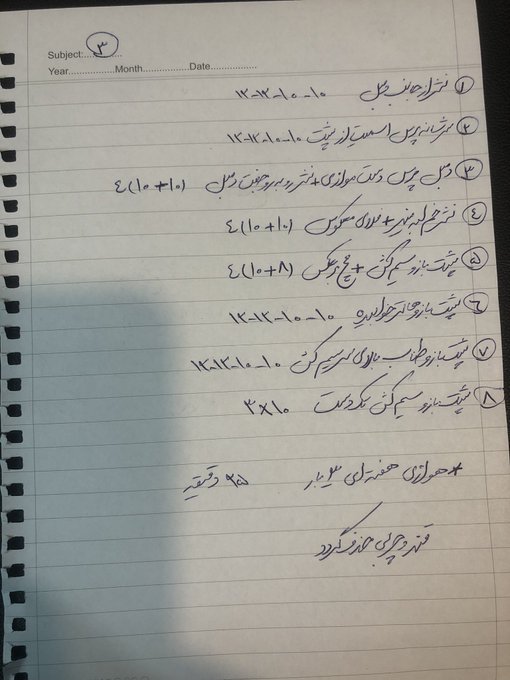 Subject:............ ۳
Year................Month.................Date................
۱ نشر از جانب دمبل ۱۲-۱۲-۱۰-۱۰
۲ سرشانه پرس اسمیت از پشت ۱۲-۱۲-۱۰-۱۰
۳ دمبل پرس دست موازی + نشر روبرو جفت دمبل ۴(۱۰+۱۰)
۴ نشر خم لبه میز + فلای معکوس ۴(۱۰+۱۰)
۵ پشت بازو سیم کش + مچ برعکس ۴(۱۰+۸)
۶ پشت بازو هالتر خوابیده ۱۲-۱۲-۱۰-۱۰
۷ پشت بازو طناب بالای سر سیم کش ۱۲-۱۲-۱۰-۱۰
۸ پشت بازو سیم کش تک دست ۳×۱۰
* هوازی هفته ای ۳ بار ۲۵ دقیقه
قند و چربی حذف گردد